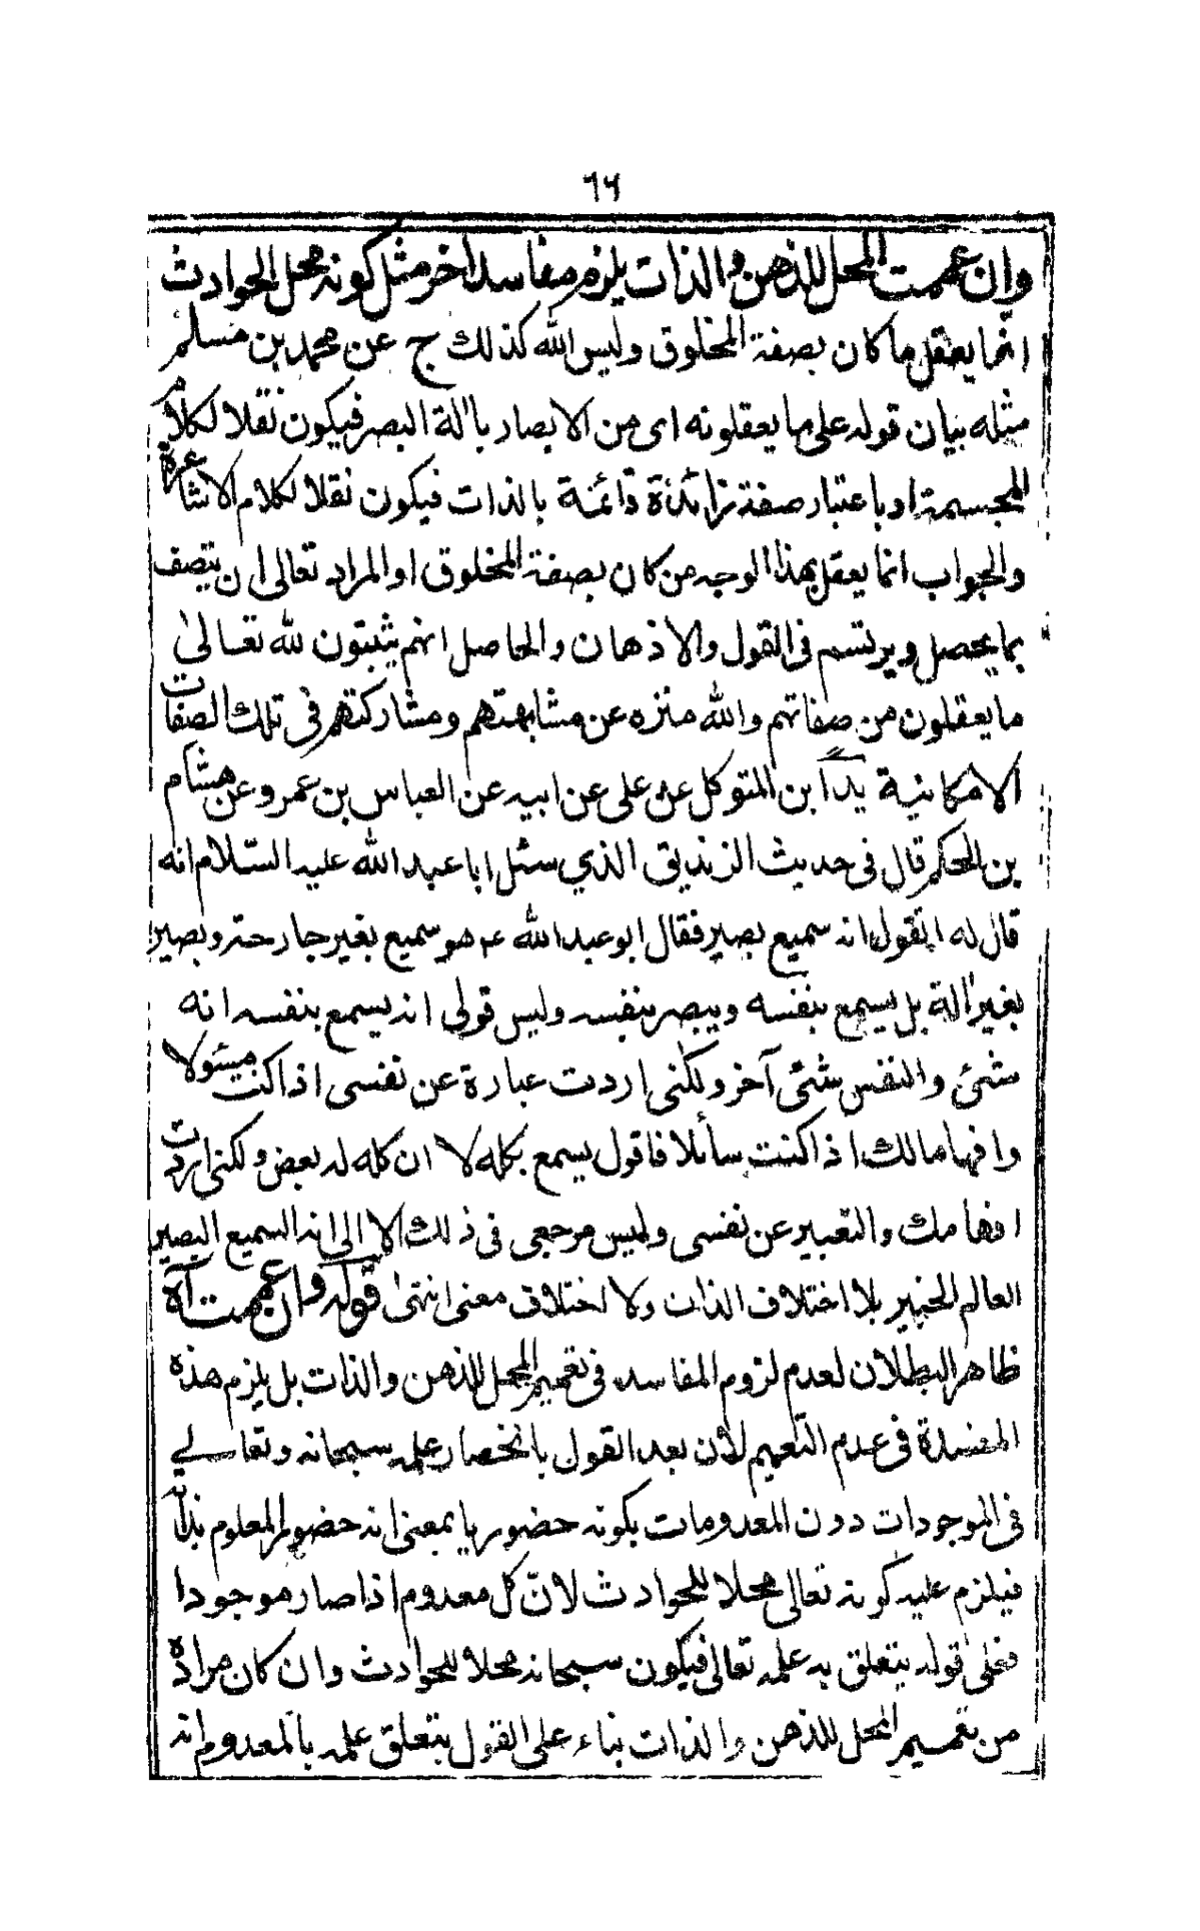 ٦٤
وان عممت المحل للذهن والذات يلزم مفاسد اخر مثل كونه محل الحوادث
انما يعقل ما كان بصفة المخلوق وليس الله كذلك ج عن محمد بن مسلم
مثله بيان قوله على ما يعقلونه اى من الابصار بالة البصر فيكون نقلا لكلام
المجسمة او باعتبار صفة زائدة قائمة بالذات فيكون نقلا لكلام الاشاعرة
والجواب انما يعقل بهذا الوجه من كان بصفة المخلوق او المراد تعالى ان يتصف
بما يحصل ويرتسم فى القول والاذهان والحاصل انهم يثبتون لله تعالى
ما يعقلون من صفاتهم والله منزه عن مشابهتهم ومشاركتهم فى تلك الصفات
الامكانية يد ابن المتوكل عن على عن ابيه عن العباس بن عمرو عن هشام
بن الحكم قال فى حديث الزنديق الذي سئل ابا عبد الله عليه السلام انه
قال له اتقول انه سميع بصير فقال ابو عبد الله ع هو سميع بغير جارحة وبصير
بغير الة بل يسمع بنفسه ويبصر بنفسه وليس قولى انه يسمع بنفسه انه
شئ والنفس شئ آخر ولكنى اردت عبارة عن نفسى اذ اكنت مسئولا
وافهاما لك اذ اكنت سائلا فاقول يسمع بكله لا ان كله له بعض ولكنى اردت
افهامك والتعبير عن نفسى وليس مرجعى فى ذلك الا الى انه السميع البصير
العالم الخبير بلا اختلاف الذات ولا اختلاف معنى انتهى قوله وان عممت آه
ظاهر البطلان لعدم لزوم المفاسد فى تعميم المحل للذهن والذات بل يلزم هذه
المفسدة فى عدم التعميم لان بعد القول بانحصار علمه سبحانه وتعالى
فى الموجودات دون المعدومات بكونه حضوريا بمعنى انه حضور المعلوم بذاته
فيلزم عليه كونه تعالى محلا للحوادث لان كل معدوم اذا صار موجودا
فعلى قوله يتعلق به علمه تعالى فيكون سبحانه محلا للحوادث وان كان مراده
من تعميم المحل للذهن والذات بناء على القول بتعلق علمه بالمعدوم انه